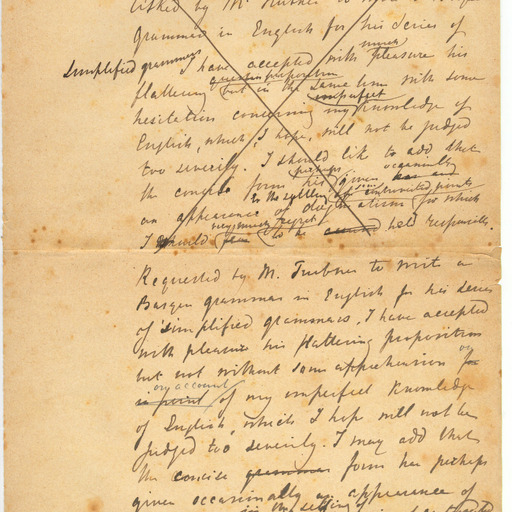 asked by Mr. to write a
Grammar in English for his series of
simplified grammars I have accepted with much pleasure his
flattering proposition but in the same time with some
hesitation concerning my imperfect knowledge of
English, which, I hope, will not be judged
too severily. I should like to add that
the concise form his perhaps given occasionally
an appearance of to the settling of controverted points for which
I should very much regret to be held responsible.
Requested by M. Trubner to write a
Basque grammar in English for his series
of simplified grammars, I have accepted
with pleasure his flattering proposition
but not without some apprehension on
in point on account of my imperfect knowledge
of English, which I hope will not be
judged too severily. I may add that
the concise grammar form has perhaps
given occasionally an appearance of
in the settling of